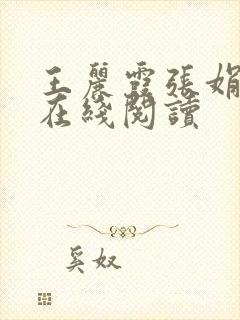 王麗霞張娟
在綫閱讀
奚奴